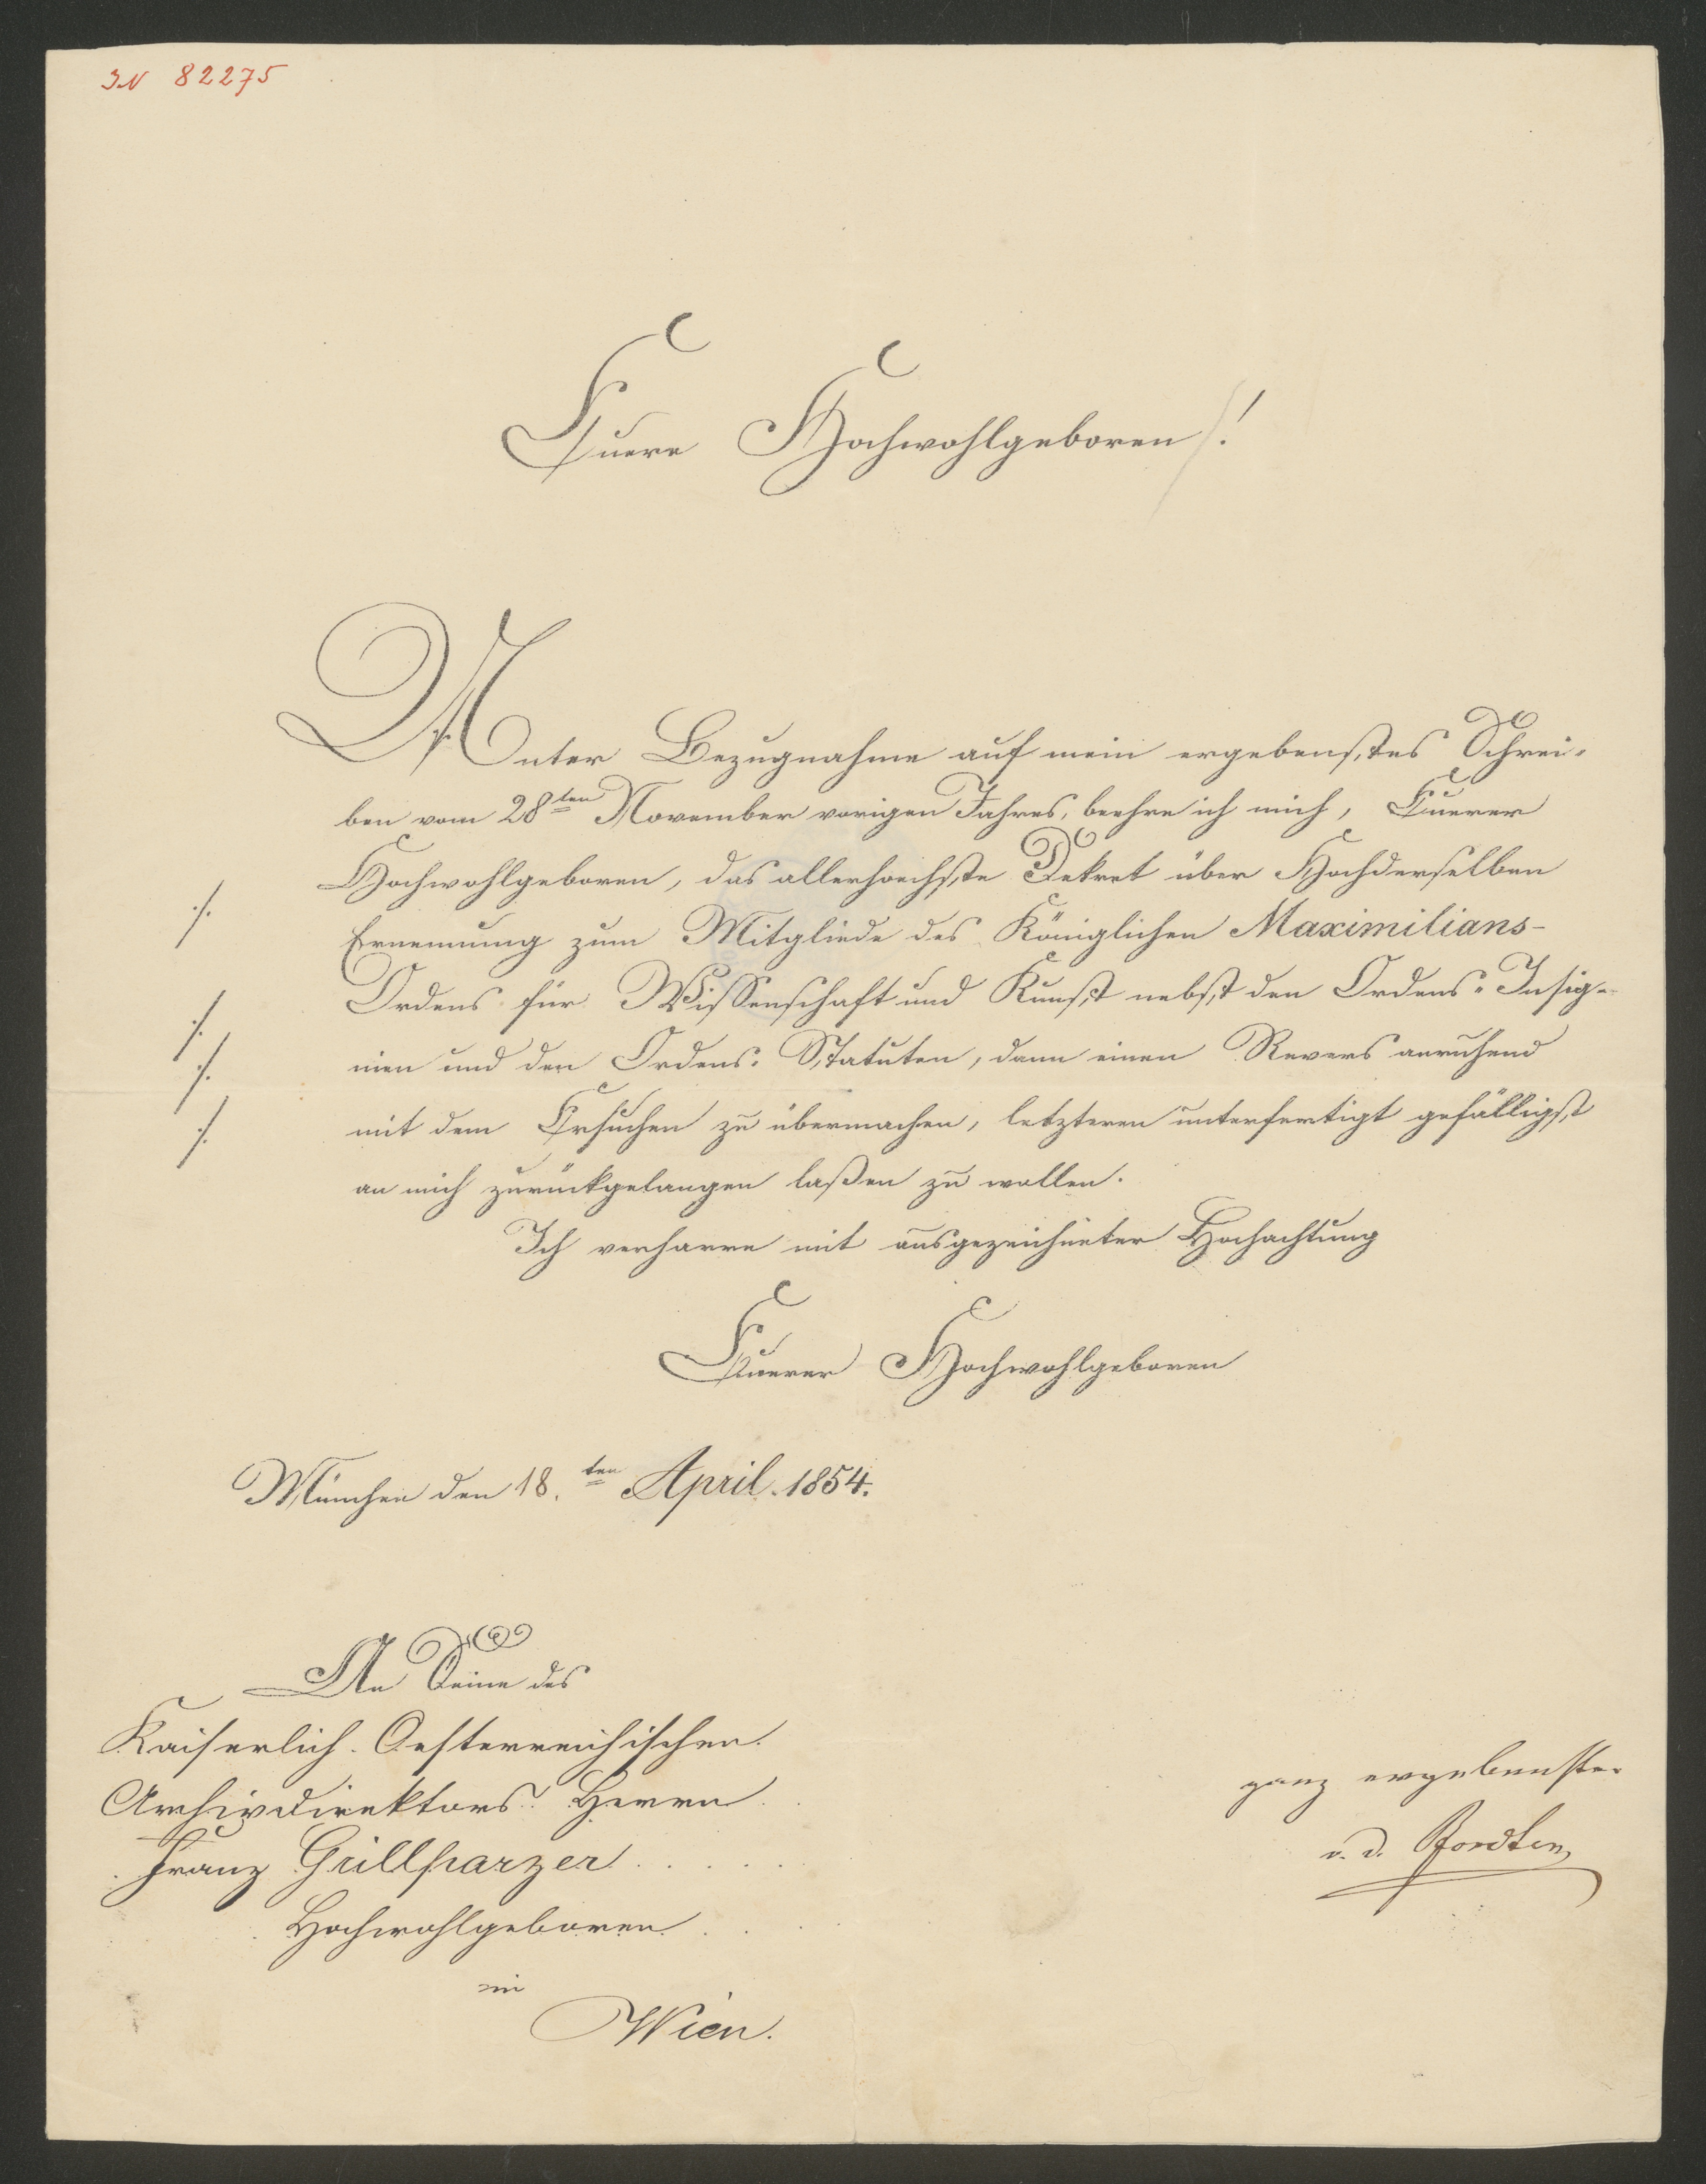 IN 82275
Euere Hochwohlgeboren!
Unter Bezugnahme auf mein ergebenstes Schrei-
ben vom 28ten November vorigen Jahres, beehre ich mich, Euerer
Hochwohlgeboren, das allerhoechste Dekret über Hochderselben
./. Ernennung zum Mitgliede des Königlichen Maximilians-
Ordens für Wissenschaft und Kunst nebst den Ordens-Insig-
./. nien und den Ordens-Statuten, dann einen Revers anruhend
./. mit dem Ersuchen zu übermachen, letzteren unterfertigt gefälligst
./. an mich zurückgelangen laßen zu wollen.
Ich verharre mit ausgezeichneter Hochachtung
Euerer Hochwohlgeboren
München den 18.ten April 1854.
An Seine des
Kaiserlich-Oesterreichischen
Archivdirektors Herrn
Franz Grillparzer
Hochwohlgeboren
in
Wien.
ganz ergebenster
v. d. Pfordten